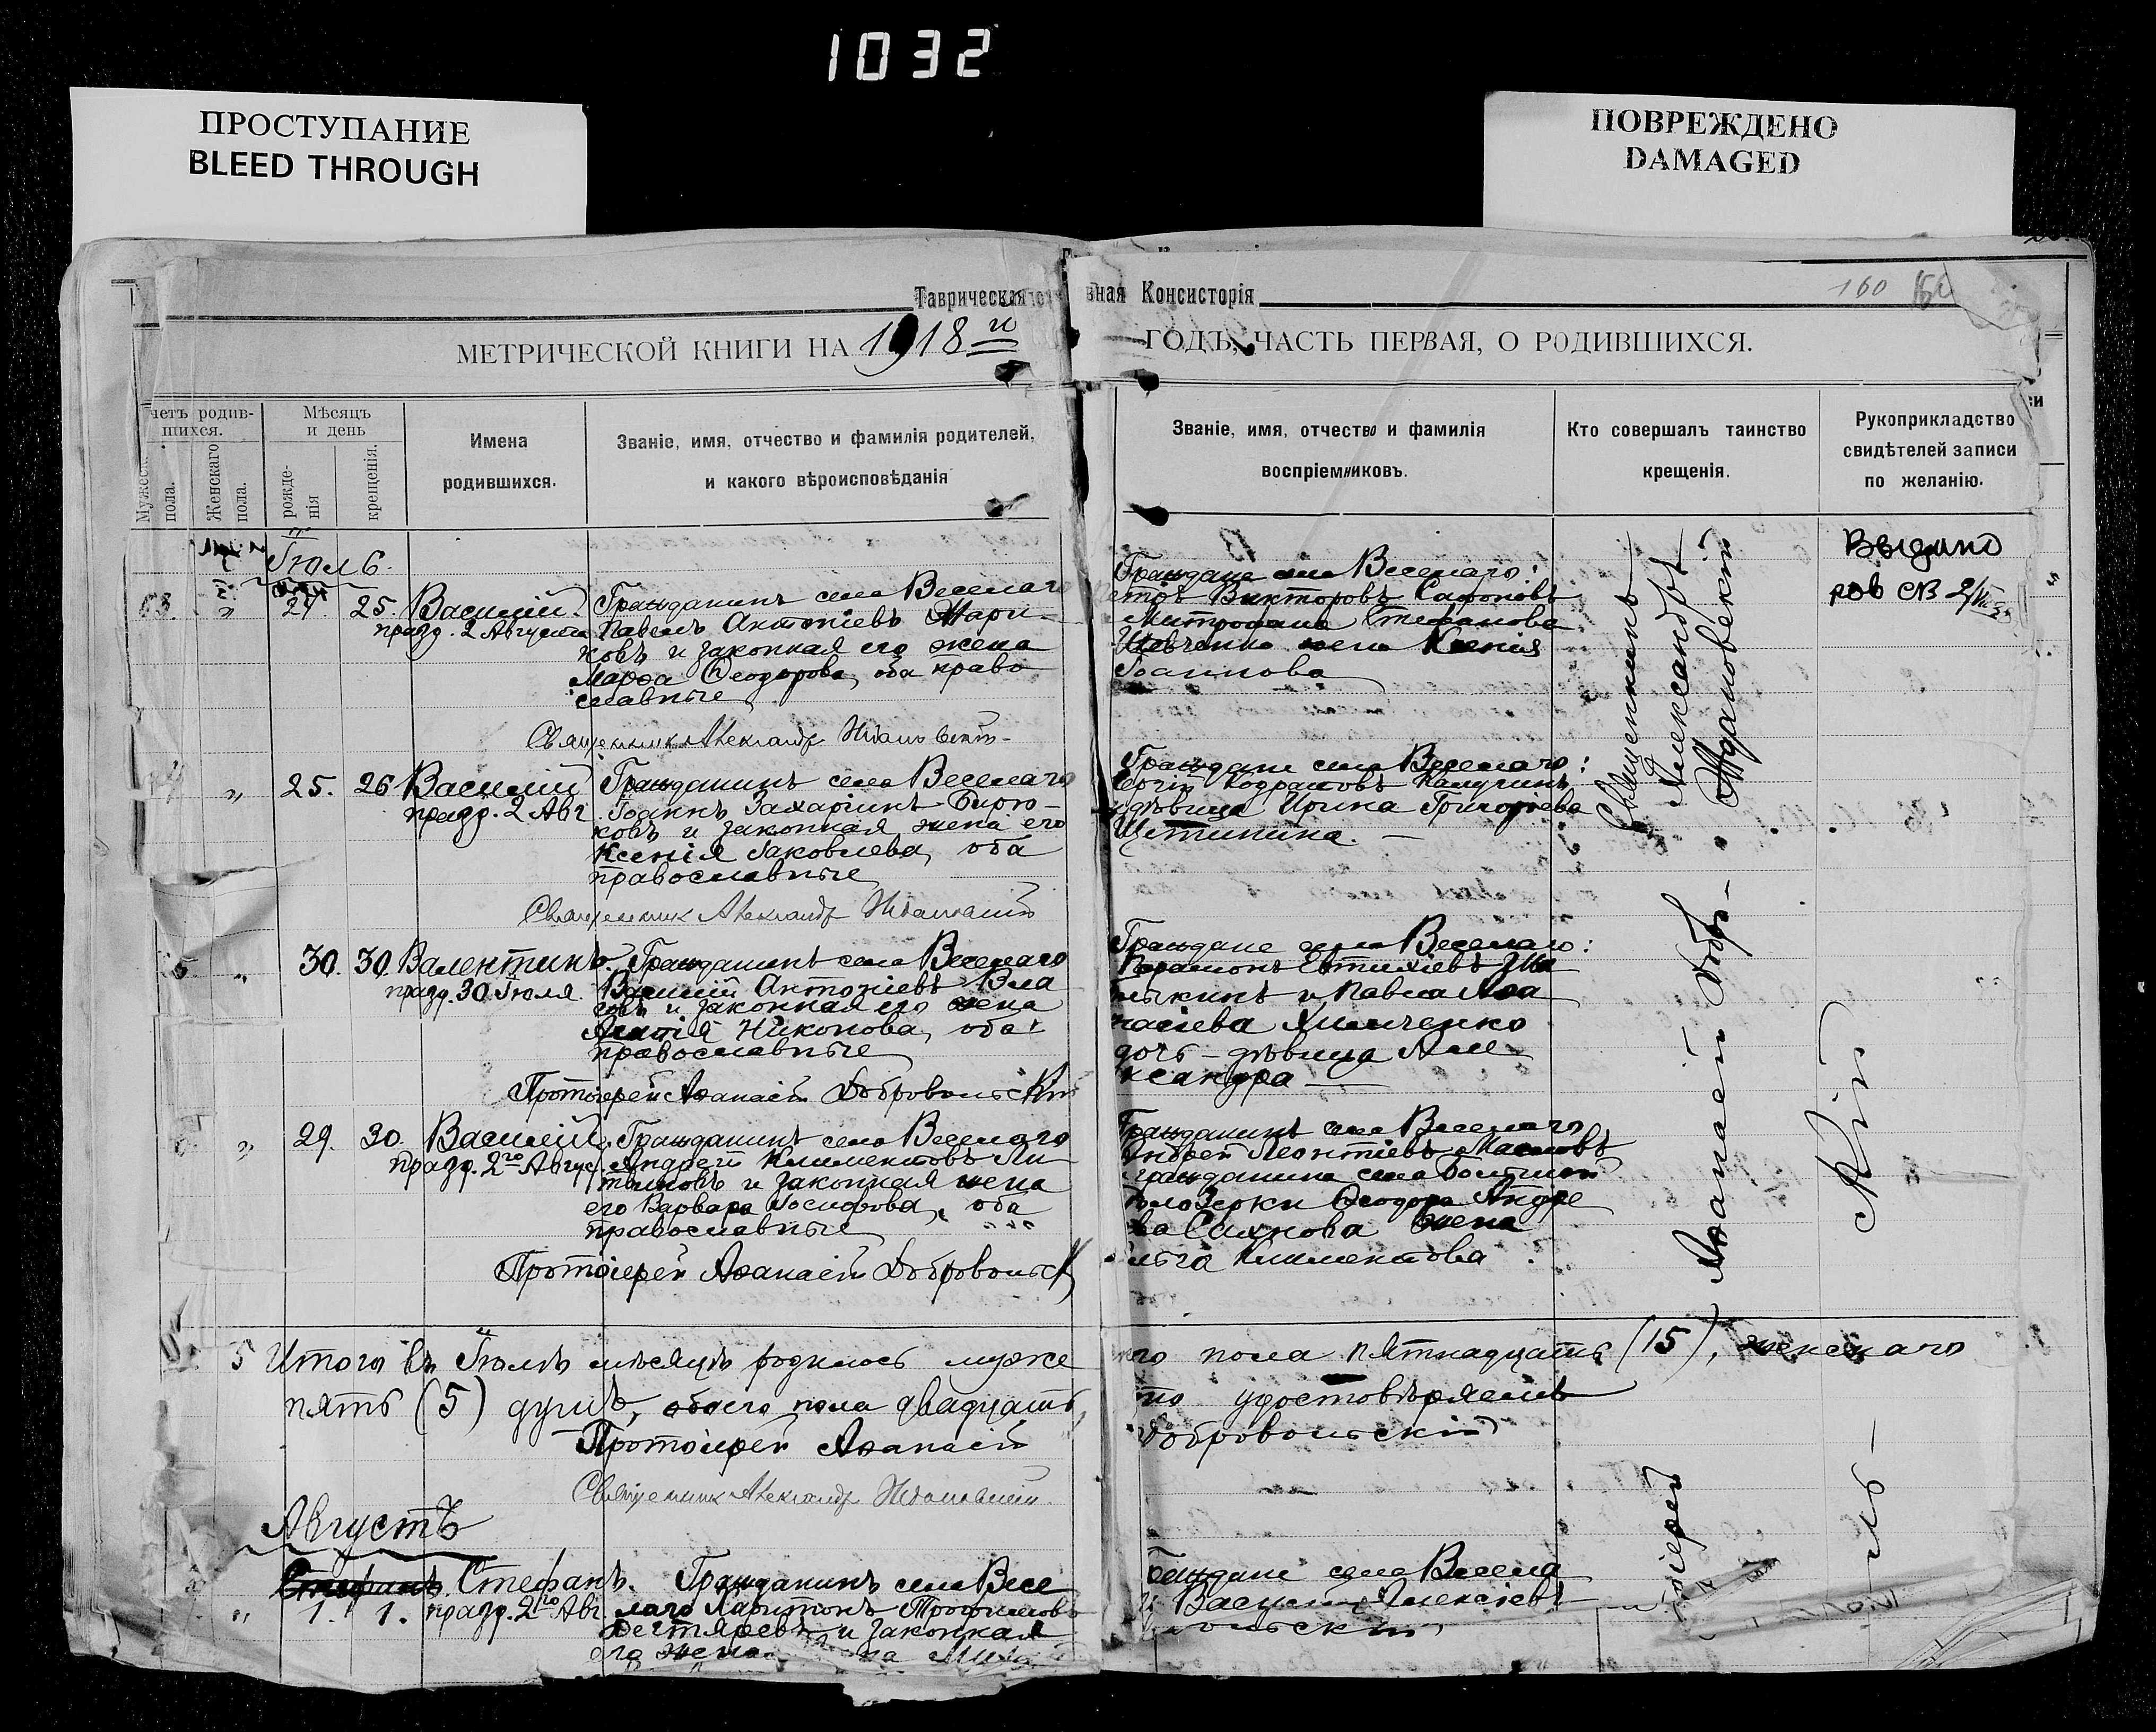 1032
ПРОСТУПАНИЕ
BLEED THROUGH
ПОВРЕЖДЕНО
DAMAGED
Таврическая
вная Консисторія
160
МЕТРИЧЕСКОЙ КНИГИ НА 1918й
ГОДЪ, ЧАСТЬ ПЕРВАЯ, О РОДИВШИХСЯ.
четъ родив-
шихся.
Мужеск.
пола.
Женскаго
пола.
Мѣсяцъ
и день
рожде-
нія
крещенія.
Имена
родившихся.
Званіе, имя, отчество и фамилія родителей,
и какого вѣроисповѣданія
Званіе, имя, отчество и фамилія
воспріемниковъ.
Кто совершалъ таинство
крещенія.
Рукоприкладство
свидѣтелей записи
по желанію.
Іюль
24. 25. Василій
празд. 2 Августа
Гражданинъ села Веселаго
Павелъ Антоніевъ Жари-
ковъ и законная его жена
Марѳа Ѳеодорова, оба право
славные
Священникъ Александръ
Граждане села Веселаго:
Викторовъ Сафоновъ
Митрофана Стефанова
Шевченко жена Ксенія
Іоаннова
Священникъ
Александръ
Выдано
" 25. 26 Василій
празд. 2 Авг.
Гражданинъ села Веселаго
Іоаннъ Захаріинъ Бирю-
ковъ и законная жена его
Ксенія Іаковлева, оба
православные
Священник Александр
Граждане села Веселаго:
дѣвица Ирина Григоріева
Щетинина. —
" 30. 30. Валентинъ.
празд. 30 Іюля.
Гражданинъ села Веселаго
Василій Антоніевъ Вла
совъ и законная его жена
Никонова, оба
православные
Протоіерей Аѳанасій Добровольскій
Граждане села Веселаго:
Парамонъ Евтихіевъ
и Павла Аѳа
насіева Хильченко
дочь - дѣвица Але
ксандра —
" 29. 30. Василій.
празд. 2го Август.
Гражданинъ села Веселаго
Андрей Климентовъ Ли
и законная жена
его Варвара Іосифова, оба
православные
Протоіерей Аѳанасій Добровольск
Гражданинъ села Веселаго
Андрей Леонтіевъ Масловъ
гражданина села Большой
Бѣлозерки Ѳеодора Андре
ва Сахнова жена
льга Климентова
Аѳанасій Добро-
воль-
скій
5 Итого въ Іюлѣ мѣсяцѣ родилось муже
го пола пятнадцать (15), женскаго
пять (5) душъ, обоего пола двадцать,
что удостовѣряемъ
Протоіерей Аѳанасій
Добровольскій
Священник Александр
Августъ
Стефанъ.
" 1. 1. празд. 2го Авг.
Гражданинъ села Весе
лаго Харитонъ Трофимовъ
Дегтяревъ и законная
его жена
Граждане села Весела
Василій Алексіевъ